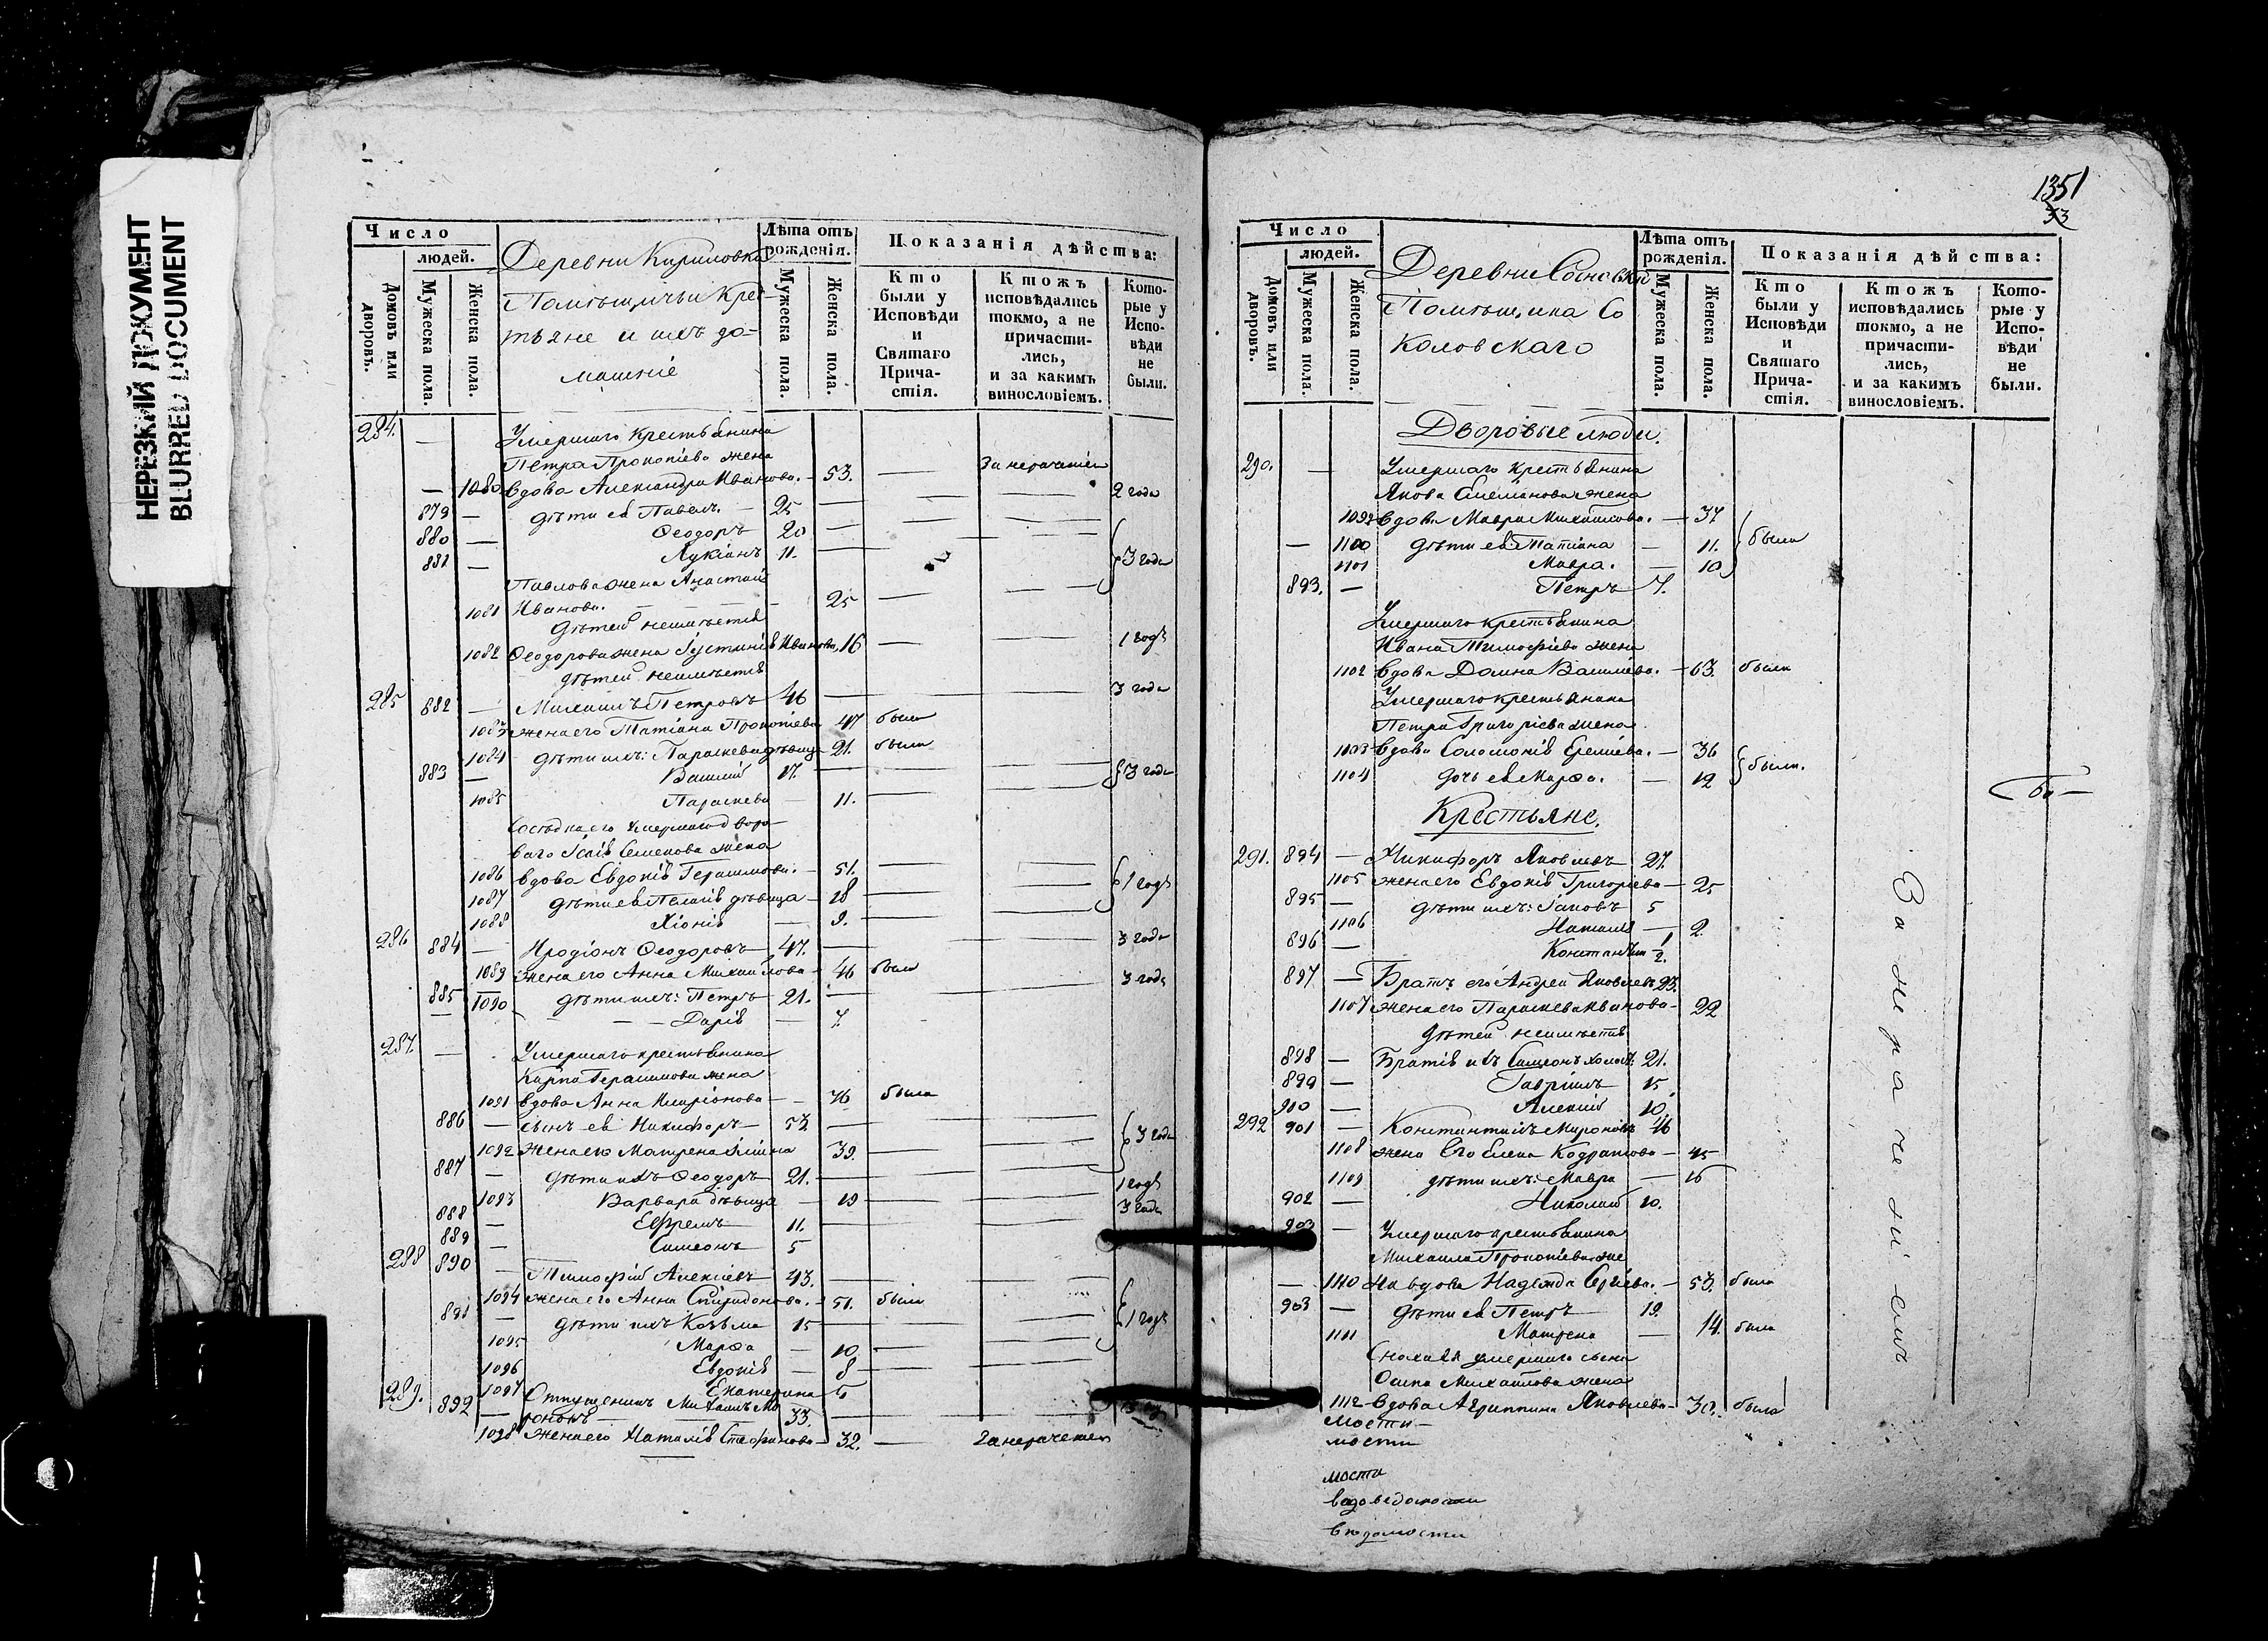 НЕРЕЗКИЙ ДОКУМЕНТ
BLURRED DOCUMENT
Число
людей.
Домовъ или дворовъ.
Мужеска пола.
Женска пола.
Деревни Кириловка
Помѣщичьи Крес-
тьяне и ихъ до-
машніе
Лѣта отъ рожденія.
Мужеска пола.
Женска пола.
Показанія дѣйства:
Кто были у Исповѣди и Святаго Прича-стія.
Ктожъ исповѣдались токмо, а не причасти-лись, и за какимъ винословіемъ.
Кото-рые у Испо-вѣди не были.
284. — Умершаго крестьянина
Петра Прокопіева жена За нераченіем
— 1080 вдова Александра Иванова. — 53. — 2 года
879 — дѣти ея Павелъ. — 25 —
880 — Ѳеодоръ 20 —
881 — Лукіанъ 11. — 3 года
Павлова жена Анастасія
1081 Иванова. — 25 —
дѣтей неимѣетъ
1082 Ѳеодорова жена Іустинія Иванова. 16 — 1 годъ
дѣтей неимѣетъ
285 882 — Михаилъ Петровъ 46 — 3 года
1083 жена его Татіана Прокопіева 47 была
1084 дѣти ихъ: Параскева дѣвица 21. была
883 — Василій 17. — 3 года
1085 Параскева — 11. —
Сосѣдка его умершаго дворо-
ваго Семенова жена
1086 вдова Евдокія Герасимова. — 51. —
1087 дѣти ея Пелагія дѣвица — 18 — 1 годъ
1088 Хіонія — 9. —
286 884 — Иродіонъ Ѳеодоровъ 47. — 3 года
1089 жена его Анна Михайлова — 46 была
885 1090 дѣти ихъ: Петръ 21. — 3 года
— Дарія — 7.
287. — Умершаго крестьянина
Карпа Герасимова жена
1091 вдова Анна Иларіонова — 76 была
886 — сынъ ея Никифоръ — 53 —
1092 жена его Матрена 39. — 3 года
887 — дѣти ихъ Ѳеодоръ 21. —
1093 Варвара дѣвица — 19 1 годъ
888 — Ефремъ 11. — 3 года
889 — Симеонъ 5
288 890 — Тимофей Алексіевъ 43. —
1094 жена его Анна Спиридонова. — 51. была
891 — дѣти ихъ Козьма 15 — 1 годъ
1095 Марѳа — 10 —
1096 Евдокія — 8 —
1097 Екатерина 5
289. 892 — Отпущеникъ Михаилъ Ми
роновъ 33. —
1098 жена его Наталія Стефанова — 32. — За нераченіем
1351
33
Число
людей.
Домовъ или дворовъ.
Мужеска пола.
Женска пола.
Деревни Сосновки
Помѣщика Со
коловскаго
Лѣта отъ рожденія.
Мужеска пола.
Женска пола.
Показанія дѣйства:
Кто были у Исповѣди и Святаго Прича-стія.
Ктожъ исповѣдались токмо, а не причасти-лись, и за какимъ винословіемъ.
Кото-рые у Испо-вѣди не были.
Дворовые люди.
290. — Умершаго крестьянина
Якова жена
1099 вдова Мавра Михайлова. — 37
— 1100 дѣти ея: Татіана — 11. были
1101 Мавра. — 10
893. — Петръ 7.
Умершаго крестьянина
Ивана Тимофіева жена
1102 вдова Домна Василіева. — 63. была
Умершаго крестьянина
Петра Григоріева жена
1103 вдова Соломонія Ереміева. — 36
1104 дочь ея Марѳа. — 12 были.
Крестьяне.
291. 894 — Никифоръ Яковлевъ 27.
1105 жена его Евдокія Григоріева — 25
895 — дѣти ихъ: Іаковъ 5
1106 Наталія — 2
896 — Константинъ 1/2.
897 — Братъ его Андрей Яковлевъ 23.
1107 жена его Параскева Иванова — 22
дѣтей неимѣетъ
898 — Братія ихъ Симеонъ холос. 21.
899 — Гавріилъ 15
900 — Алексій 10.
292 901 — Константинъ Мироновъ 46
1108 жена его Елена Кодратова — 45
1109 дѣти ихъ: Мавра — 16
902 — Николай 10.
903 — Умершаго крестьянина
Михаила Прокопіева же
— 1110 на вдова Надежда Сергіева. — 53. была
903 — дѣти ея Петръ 19.
1111 Матрена — 14. была
Сноха ея умершаго сына
Осипа Михайлова жена
1112 вдова Агриппина Яковлева — 30. была
За нераченіемъ
мости
мости
мости
вѣдомости